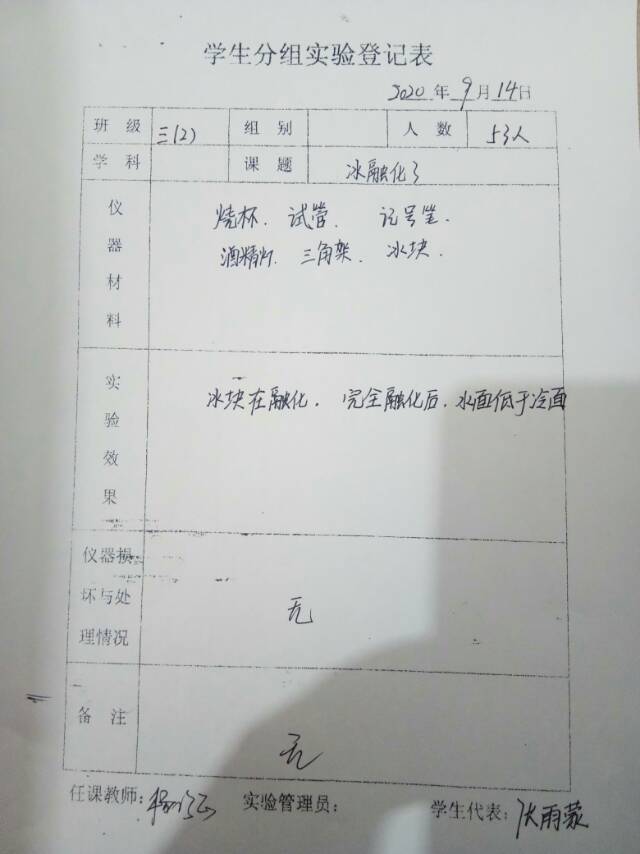 学生分组实验登记表
2020年9月14日
班级 三(2) 组别 人数 53人
学科 课题 冰融化了
仪器材料
烧杯、试管、记号笔、
酒精灯、三角架、冰块、
实验效果
冰块在融化、完全融化后、水面低于冷面
仪器损坏与处理情况
无
备注
无
任课教师: 实验管理员: 学生代表:张雨蒙